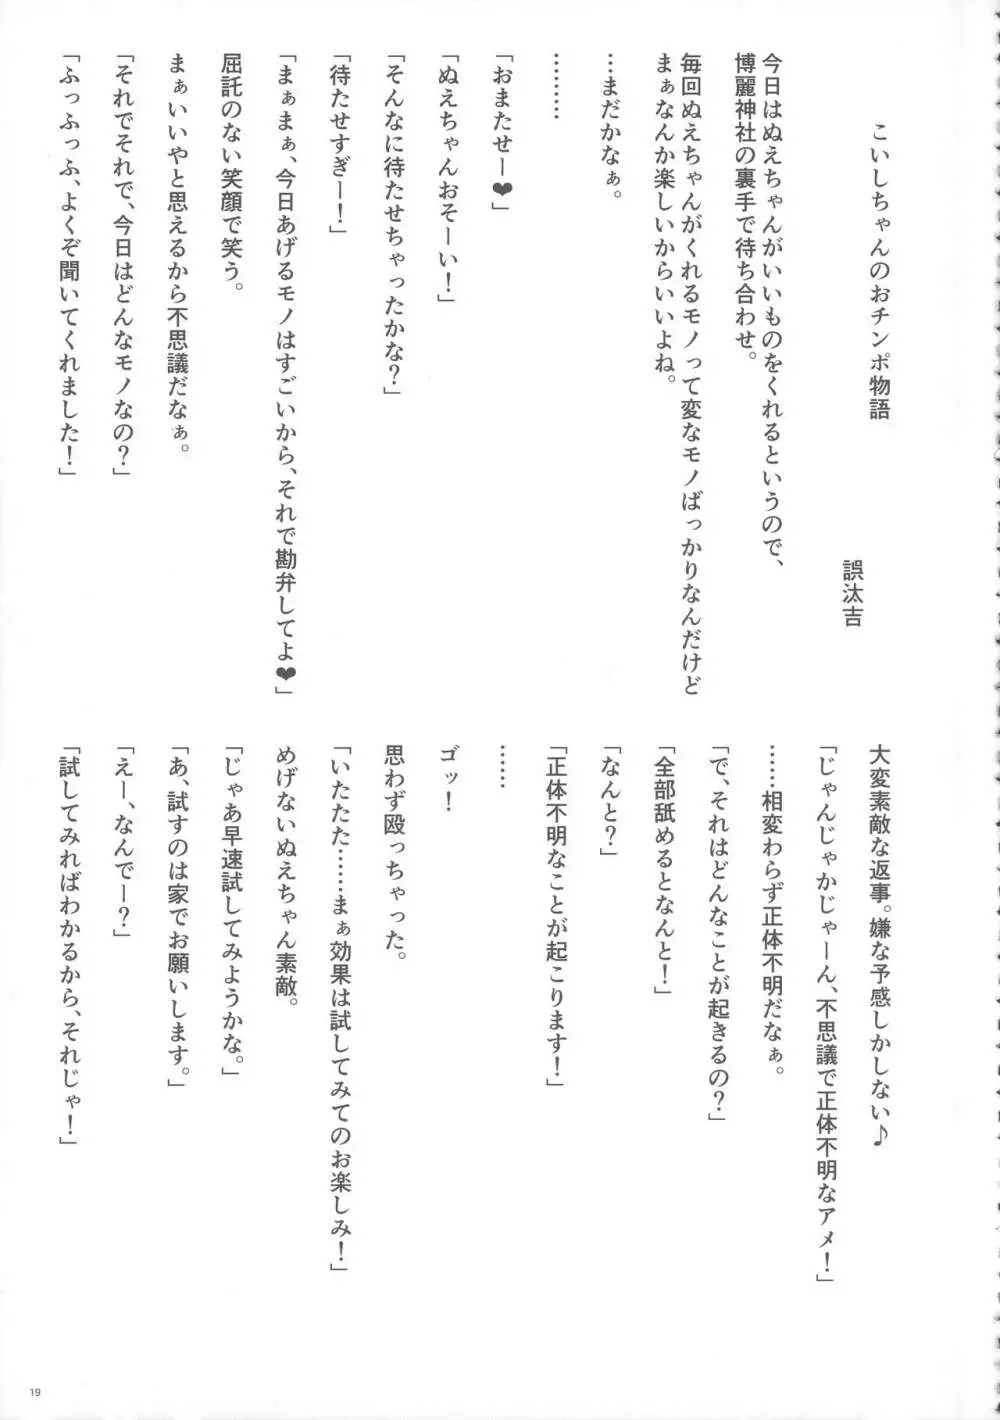 こいしちゃんのおチンポ物語
誤汰吉
今日はぬえちゃんがいいものをくれるというので、
博麗神社の裏手で待ち合わせ。
毎回ぬえちゃんがくれるモノって変なモノばっかりなんだけど
まぁなんか楽しいからいいよね。
…まだかなぁ。
………
「おまたせー❤」
「ぬえちゃんおそーい！」
「そんなに待たせちゃったかな？」
「待たせすぎー！」
「まぁまぁ、今日あげるモノはすごいから、それで勘弁してよ❤」
屈託のない笑顔で笑う。
まぁいいやと思えるから不思議だなぁ。
「それでそれで、今日はどんなモノなの？」
「ふっふっふ、よくぞ聞いてくれました！」
大変素敵な返事。嫌な予感しかしない♪
「じゃんじゃかじゃーん、不思議で正体不明なアメ！」
……相変わらず正体不明だなぁ。
「で、それはどんなことが起きるの？」
「全部舐めるとなんと！」
「なんと？」
「正体不明なことが起こります！」
……
ゴッ！
思わず殴っちゃった。
「いたたた……まぁ効果は試してみてのお楽しみ！」
めげないぬえちゃん素敵。
「じゃあ早速試してみようかな。」
「あ、試すのは家でお願いします。」
「えー、なんでー？」
「試してみればわかるから、それじゃ！」
19